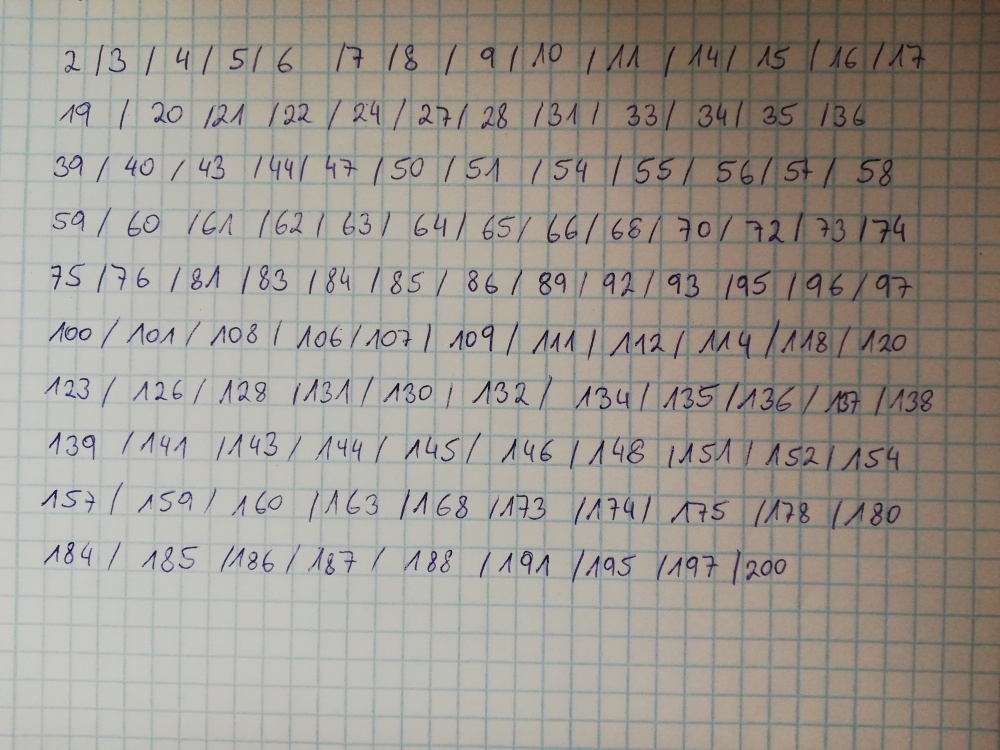 2 / 3 / 4 / 5 / 6 / 7 / 8 / 9 / 10 / 11 / 14 / 15 / 16 / 17
19 / 20 / 21 / 22 / 24 / 27 / 28 / 31 / 33 / 34 / 35 / 36
39 / 40 / 43 / 44 / 47 / 50 / 51 / 54 / 55 / 56 / 57 / 58
59 / 60 / 61 / 62 / 63 / 64 / 65 / 66 / 68 / 70 / 72 / 73 / 74
75 / 76 / 81 / 83 / 84 / 85 / 86 / 89 / 92 / 93 / 95 / 96 / 97
100 / 101 / 108 / 106 / 107 / 109 / 111 / 112 / 114 / 118 / 120
123 / 126 / 128 / 131 / 130 / 132 / 134 / 135 / 136 / 137 / 138
139 / 141 / 143 / 144 / 145 / 146 / 148 / 151 / 152 / 154
157 / 159 / 160 / 163 / 168 / 173 / 174 / 175 / 178 / 180
184 / 185 / 186 / 187 / 188 / 191 / 195 / 197 / 200